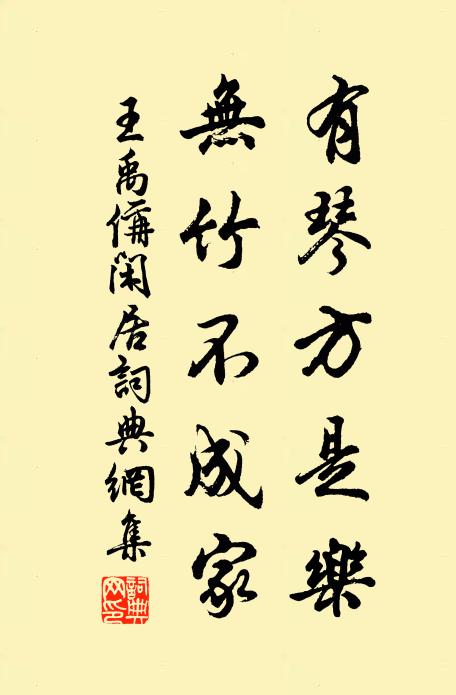 有琴方是樂
無竹不成家
王禹偁閑居詞典網集
詞典網印